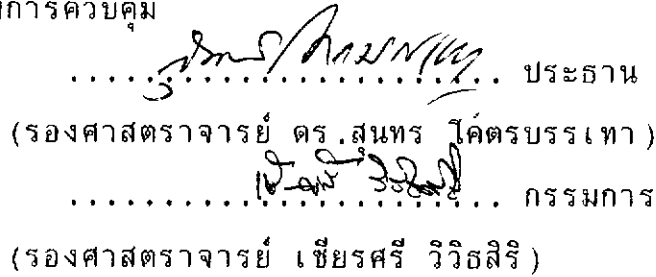 การควบคุม
........................ ประธาน
(รองศาสตราจารย์ ดร.สุนทร โคตรบรรเทา)
........................ กรรมการ
(รองศาสตราจารย์ เชียรศรี วิวิธสิริ)